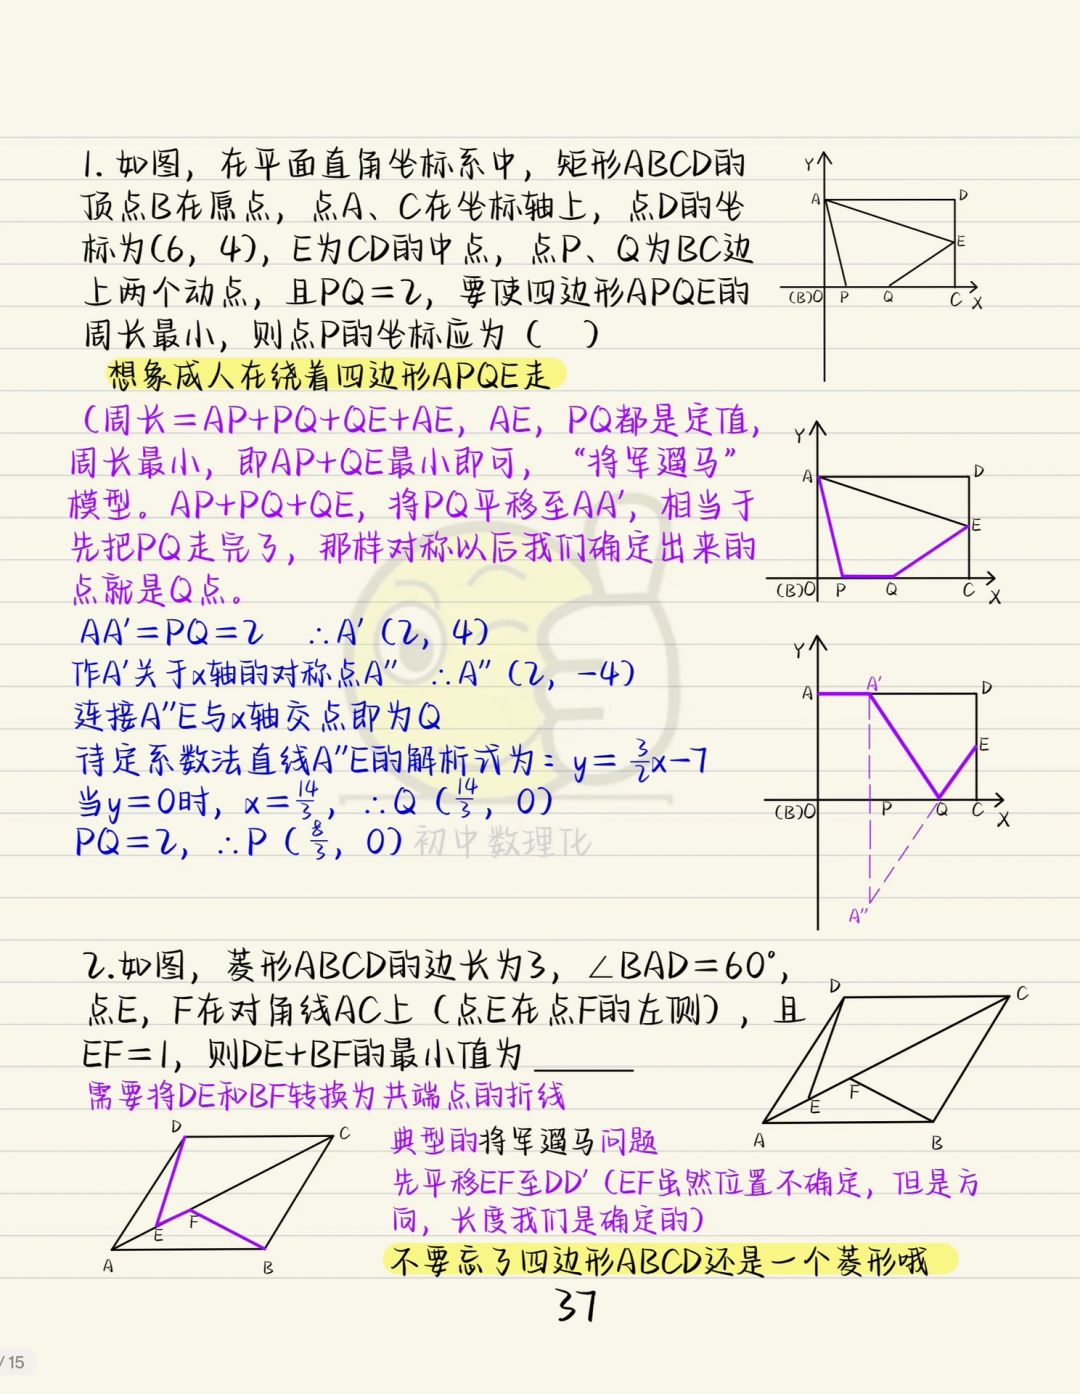 1. 如图，在平面直角坐标系中，矩形ABCD的
顶点B在原点，点A、C在坐标轴上，点D的坐
标为(6，4)，E为CD的中点，点P、Q为BC边
上两个动点，且PQ＝2，要使四边形APQE的
周长最小，则点P的坐标应为（　）
想象成人在绕着四边形APQE走
（周长＝AP+PQ+QE+AE，AE，PQ都是定值，
周长最小，即AP+QE最小即可，“将军遛马”
模型。AP+PQ+QE，将PQ平移至AA′，相当于
先把PQ走完了，那样对称以后我们确定出来的
点就是Q点。
AA′＝PQ＝2　∴A′（2，4）
作A′关于x轴的对称点A″　∴A″（2，−4）
连接A″E与x轴交点即为Q
待定系数法直线A″E的解析式为：y＝3/2x−7
当y＝0时，x＝14/3，∴Q（14/3，0）
PQ＝2，∴P（8/3，0）
初中数理化
Y
A
D
E
(B)O
P
Q
C
X
Y
A
D
E
(B)O
P
Q
C
X
Y
A
A′
D
E
(B)O
P
Q
C
X
A″
2.如图，菱形ABCD的边长为3，∠BAD＝60°，
点E，F在对角线AC上（点E在点F的左侧），且
EF＝1，则DE+BF的最小值为______
需要将DE和BF转换为共端点的折线
典型的将军遛马问题
先平移EF至DD′（EF虽然位置不确定，但是方
向，长度我们是确定的）
不要忘了四边形ABCD还是一个菱形哦
D
C
E
F
A
B
D
C
E
F
A
B
37
/15